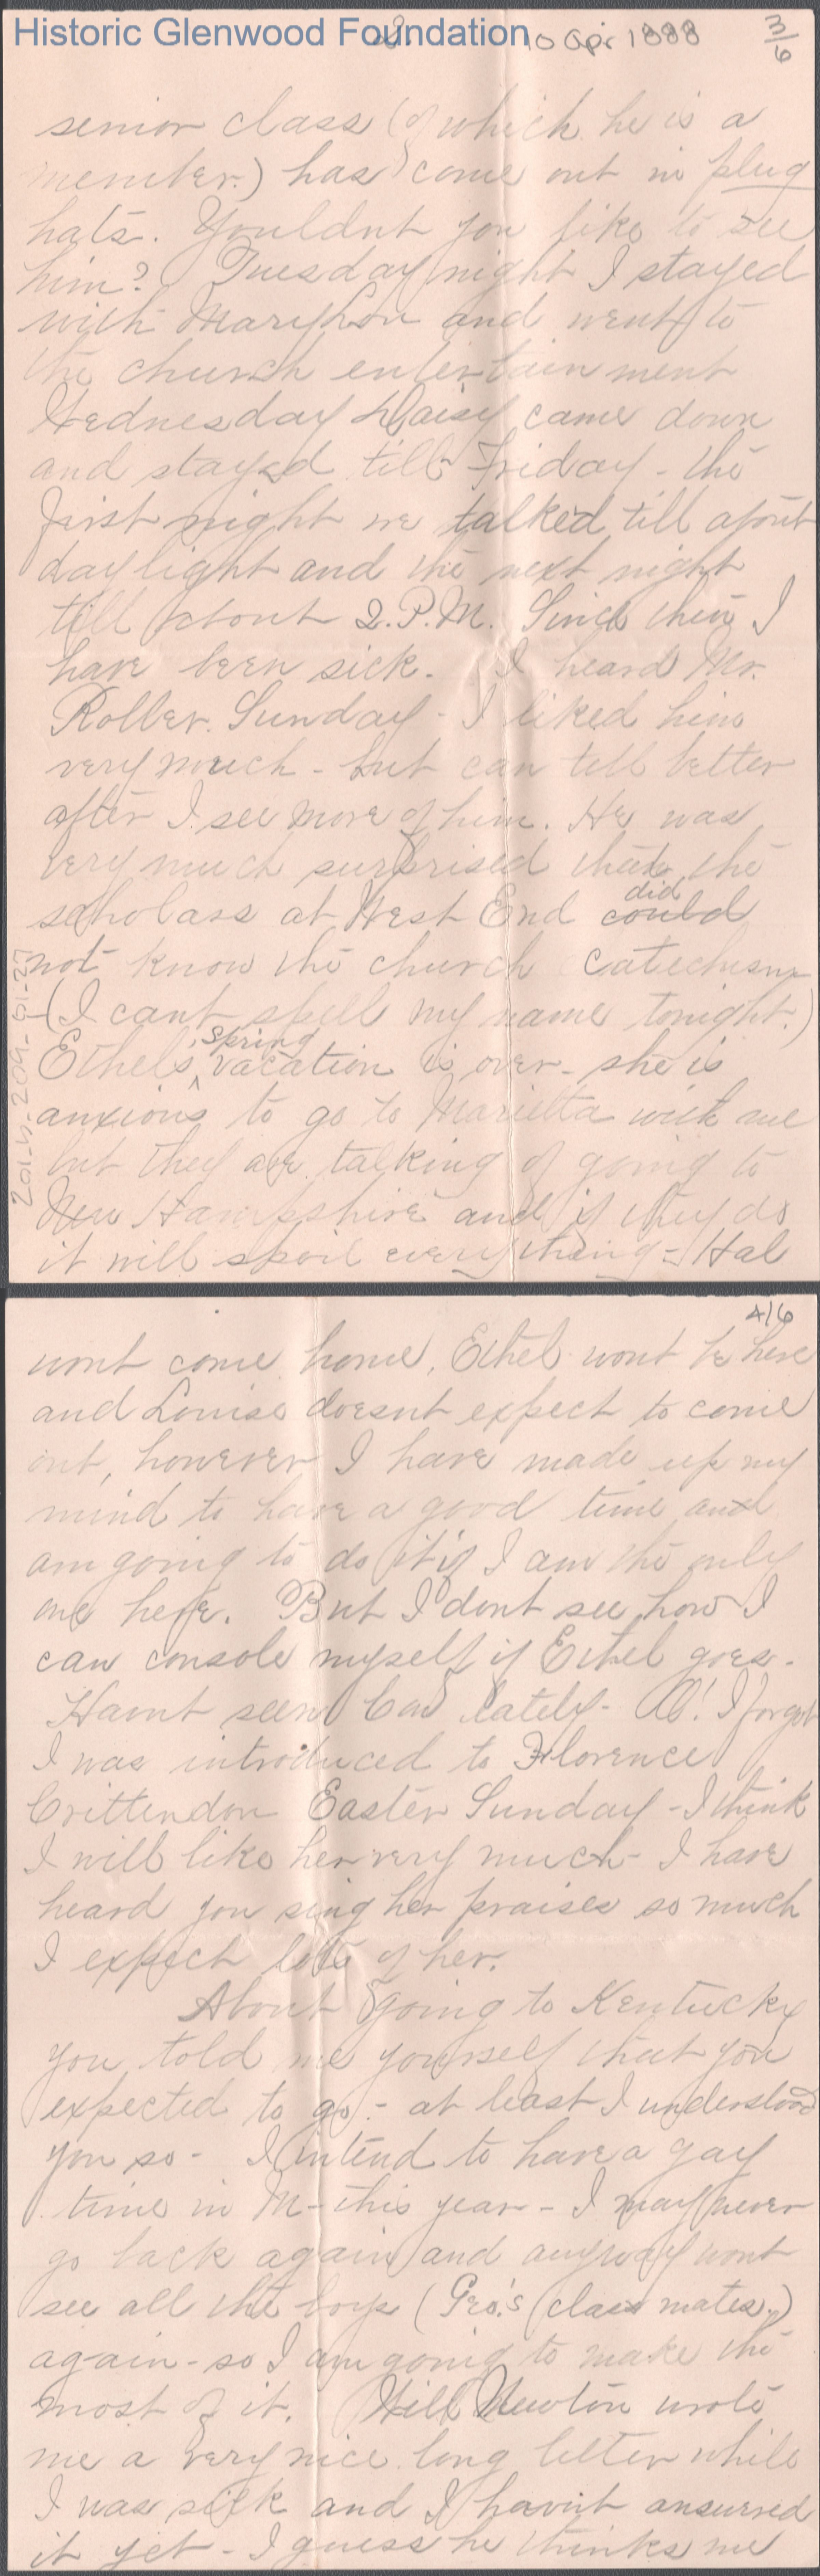 Historic Glenwood Foundation
10 Apr 1888
3/6
senior class (of which he is a
member.) has come out in plug
hats. Wouldnt you like to see
him? Tuesday night I stayed
with Mary Lou and went to
the church entertainment
Wednesday Daisy came down
and stayed till Friday - the
first night we talked till about
daylight and the next night
till about 2.P.M. Since then I
have been sick. I heard Mr.
Roller Sunday - I liked him
very much - but can tell better
after I see more of him. He was
very much surprised that the
did
scholars at West End could
not know the church catechism
(I cant spell my name tonight.)
spring
Ethels ^ vacation is over - she is
anxious to go to Marietta with me
but they are talking of going to
New Hampshire and if they do
it will spoil everything - Hal
4/6
wont come home, Ethel wont be here
and Louise doesnt expect to come
out, however I have made up my
mind to have a good time and
am going to do it if I am the only
one here. But I dont see how I
can console myself if Ethel goes.
Havnt seen lately - I forgot
I was introduced to Florence
Crittendon Easter Sunday - I think
I will like her very much - I have
heard you sing her praises so much
I expect lots of her.
About going to Kentucky
you told me yourself that you
expected to go - at least I understood
you so - I intend to have a gay
time in M- this year - I may never
go back again and anyway wont
see all the boys (Geo.'s class mates.)
again - so I am going to make the
most of it. Will Newton wrote
me a very nice long letter while
I was sick and I havnt answered
it yet - I guess he thinks me